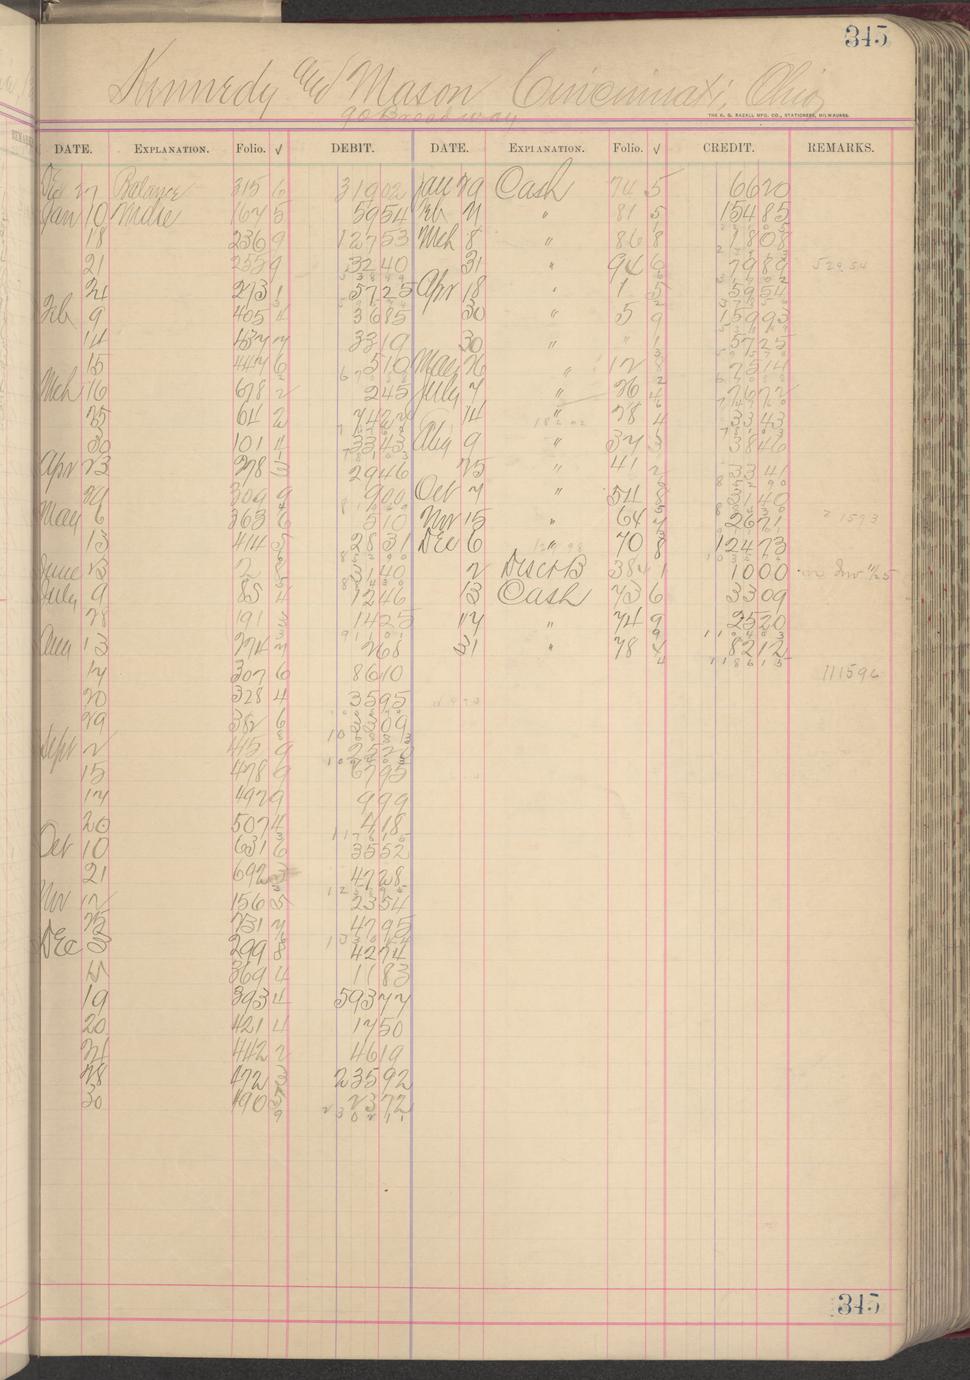 345
Kennedy and Mason Cincinnati, Ohio
90 Broadway
THE H. G. RAZALL MFG. CO., STATIONERS, MILWAUKEE.
DATE. EXPLANATION. Folio. √ DEBIT. DATE. EXPLANATION. Folio. √ CREDIT. REMARKS.
Dec 27 Balance 315 6 319 02 Jan 29 Cash 74 5 66 20
Jan 10 Mdse 167 5 59 54 Feb 21 " 81 5 154 85
18 236 9 127 53 Mch 8 " 86 8 18 08
21 255 9 32 40 31 " 94 6 79 89 529 54
24 273 1 57 25 Apr 18 " 1 5 59 54
Feb 9 405 4 36 85 30 " 5 9 159 93
14 437 7 33 19 30 " " 1 57 25
15 447 6 5 10 May 26 " 12 8 75 14
Mch 16 678 2 2 45 July 7 " 26 4 76 72
25 64 2 74 22 14 " 28 4 33 43
30 101 4 33 43 Aug 9 " 37 3 38 46
Apr 23 278 3 29 46 25 " 41 2 33 41
29 309 9 9 00 Oct 7 " 54 8 31 40
May 6 363 6 5 10 Nov 15 " 64 7 26 71
13 414 5 28 31 Dec 6 " 70 8 124 73
June 23 2 8 31 40 2 Disct B 384 1 10 00
July 9 85 4 12 46 13 Cash 73 6 33 09
28 191 3 14 25 17 " 74 9 25 20
Aug 13 274 7 2 68 31 " 78 4 82 12
17 307 6 86 10 1115 96
20 328 4 35 95
29 382 6 33 09
Sept 2 415 9 25 20
15 478 9 67 95
17 497 9 9 99
20 507 4 4 18
Oct 10 631 6 35 52
21 692 3 47 28
Nov 12 156 5 23 54
25 231 7 47 95
Dec 3 299 8 42 74
15 369 4 11 83
19 393 4 593 77
20 421 4 17 50
21 442 2 46 19
28 472 3 235 92
30 490 5 23 72
345